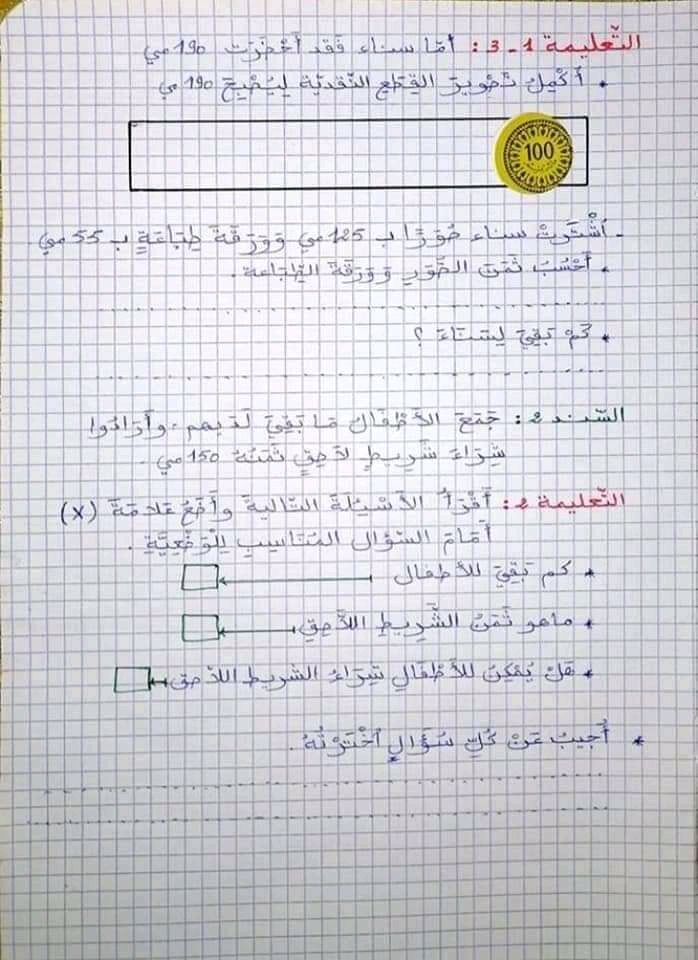 التّعليمة 1 - 3 : أمّا سناء فقد أحْضَرَت 190 مي
• أُكْمِلُ تَصْوِيرَ القِطَعِ النّقديّة لِيُصْبِحَ 190 مي
100
- اُشْتَرَتْ سناء صُوَرًا ب 125 مي وَوَرَقَةَ طِبَاعَةٍ ب 55 مي
• أحْسُبُ ثَمَنَ الصُّوَرِ وَوَرَقَةَ الطِّبَاعَة .
• كَمْ بَقِيَ لِسَنَاءَ ؟
السّند 2 : جَمَعَ الأطْفَالُ مَا بَقِيَ لَدَيهم . وأرَادُوا
شِرَاءَ شَرِيطٍ لاَصِقٍ ثَمَنُهُ 150 مي .
التّعليمة 2 : أَقْرَأُ الأسْئِلَةَ التّالية وأَضَعُ عَلاَمَةَ (x)
أَمَامَ السّؤالِ المُنَاسِبِ لِلْوَضْعِيَّةِ .
* كم بَقِيَ للأطفال
* ماهو ثَمَنُ الشَّرِيطِ اللاّصِقِ
* هَلْ يُمْكِنُ للأطْفَالِ شِرَاءُ الشّريط اللاّصق
* أُجِيبُ عَنْ كُلِّ سُؤَالٍ اُخْتَرْتُهُ .